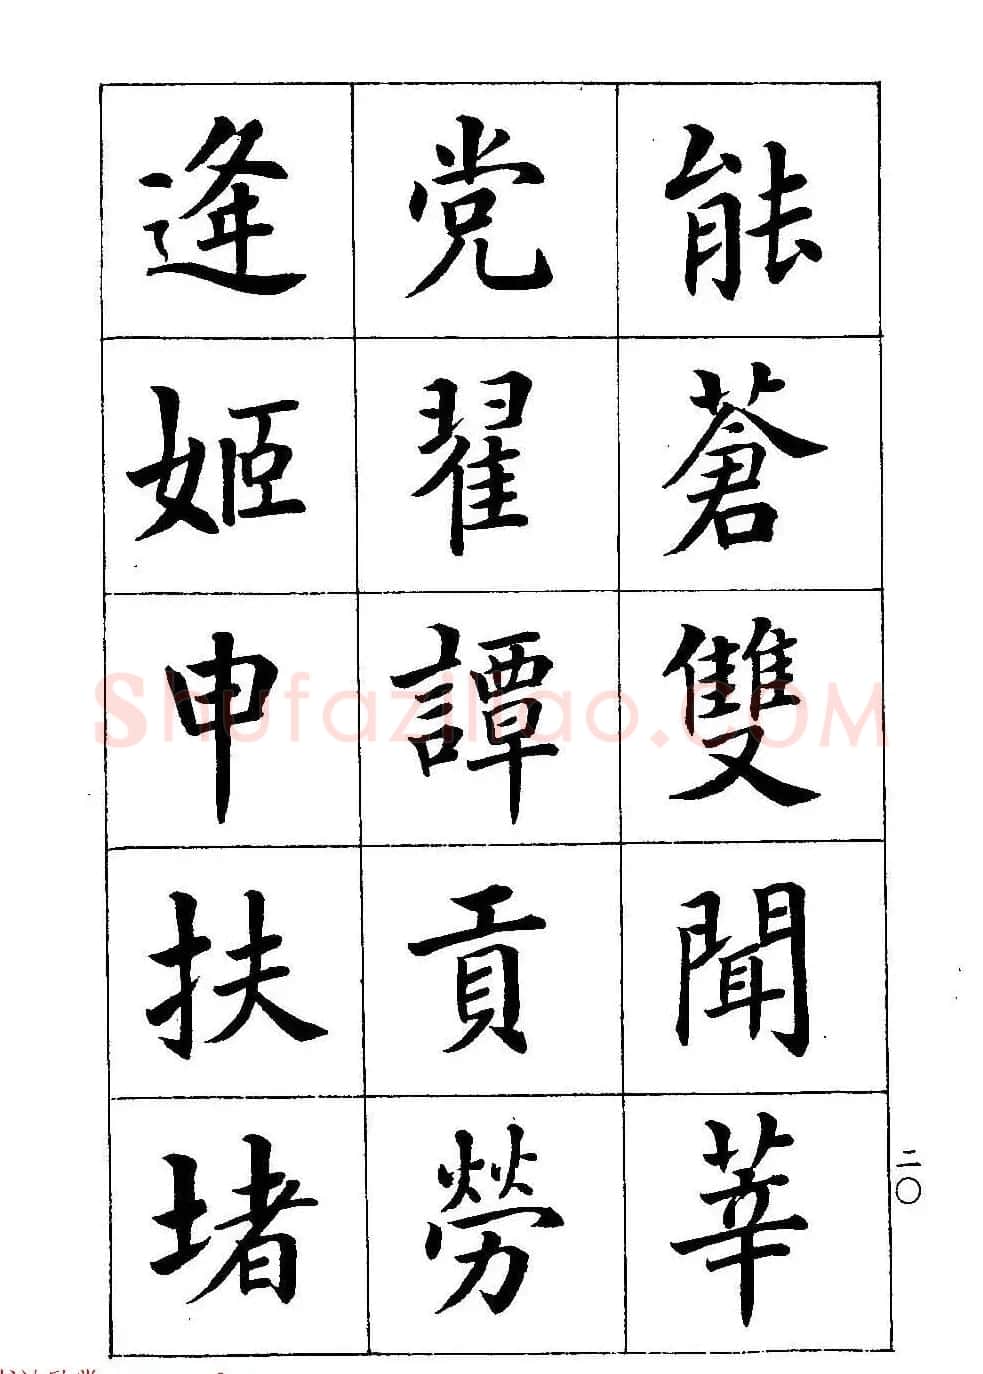 能蒼雙聞莘
党翟譚貢勞
逄姬申扶堵
二〇
Shufaziliao.COM